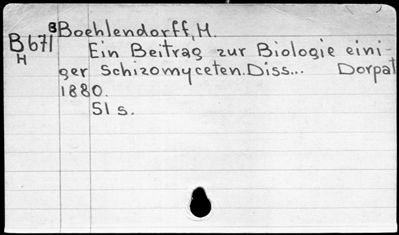 B Boehlendorff, H.
B671 Ein Beitrag zur Biologie eini-
H ger Schizomyceten. Diss... Dorpat
1880.
51 s.